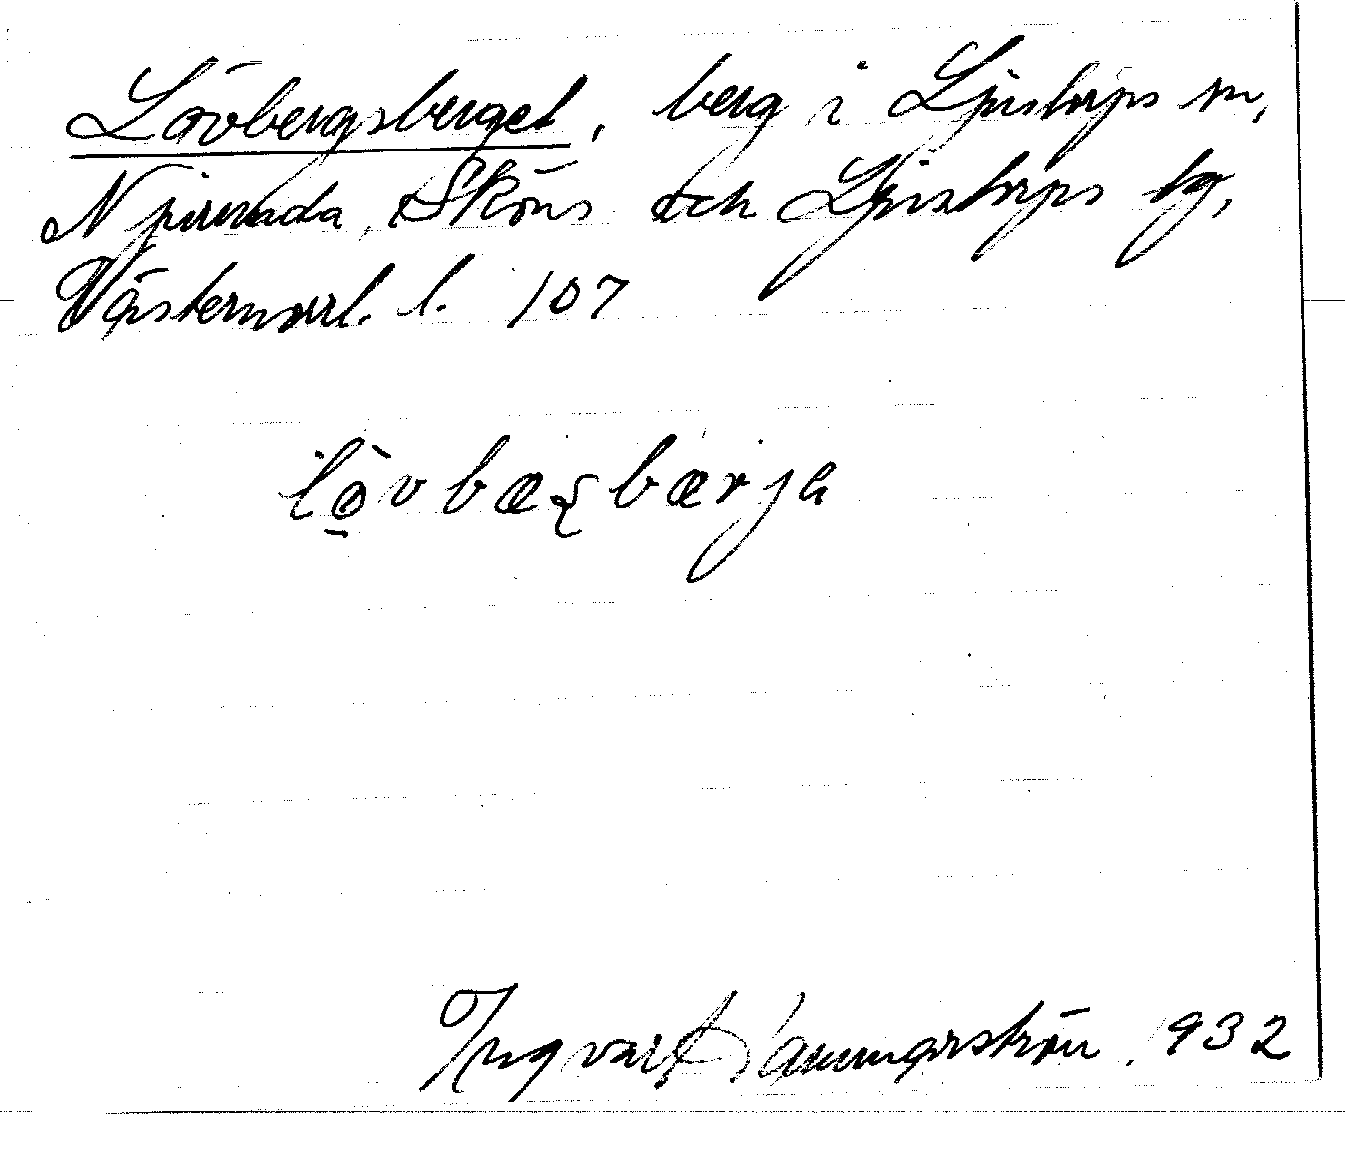 Lövbergsberget, berg i Ljustorps sn,
Njurunda, Sköns och Ljustorps tg,
Västernorrl. l. 107
lȯ̠vbæʂbærja
Ingvar Hammarström. 1932